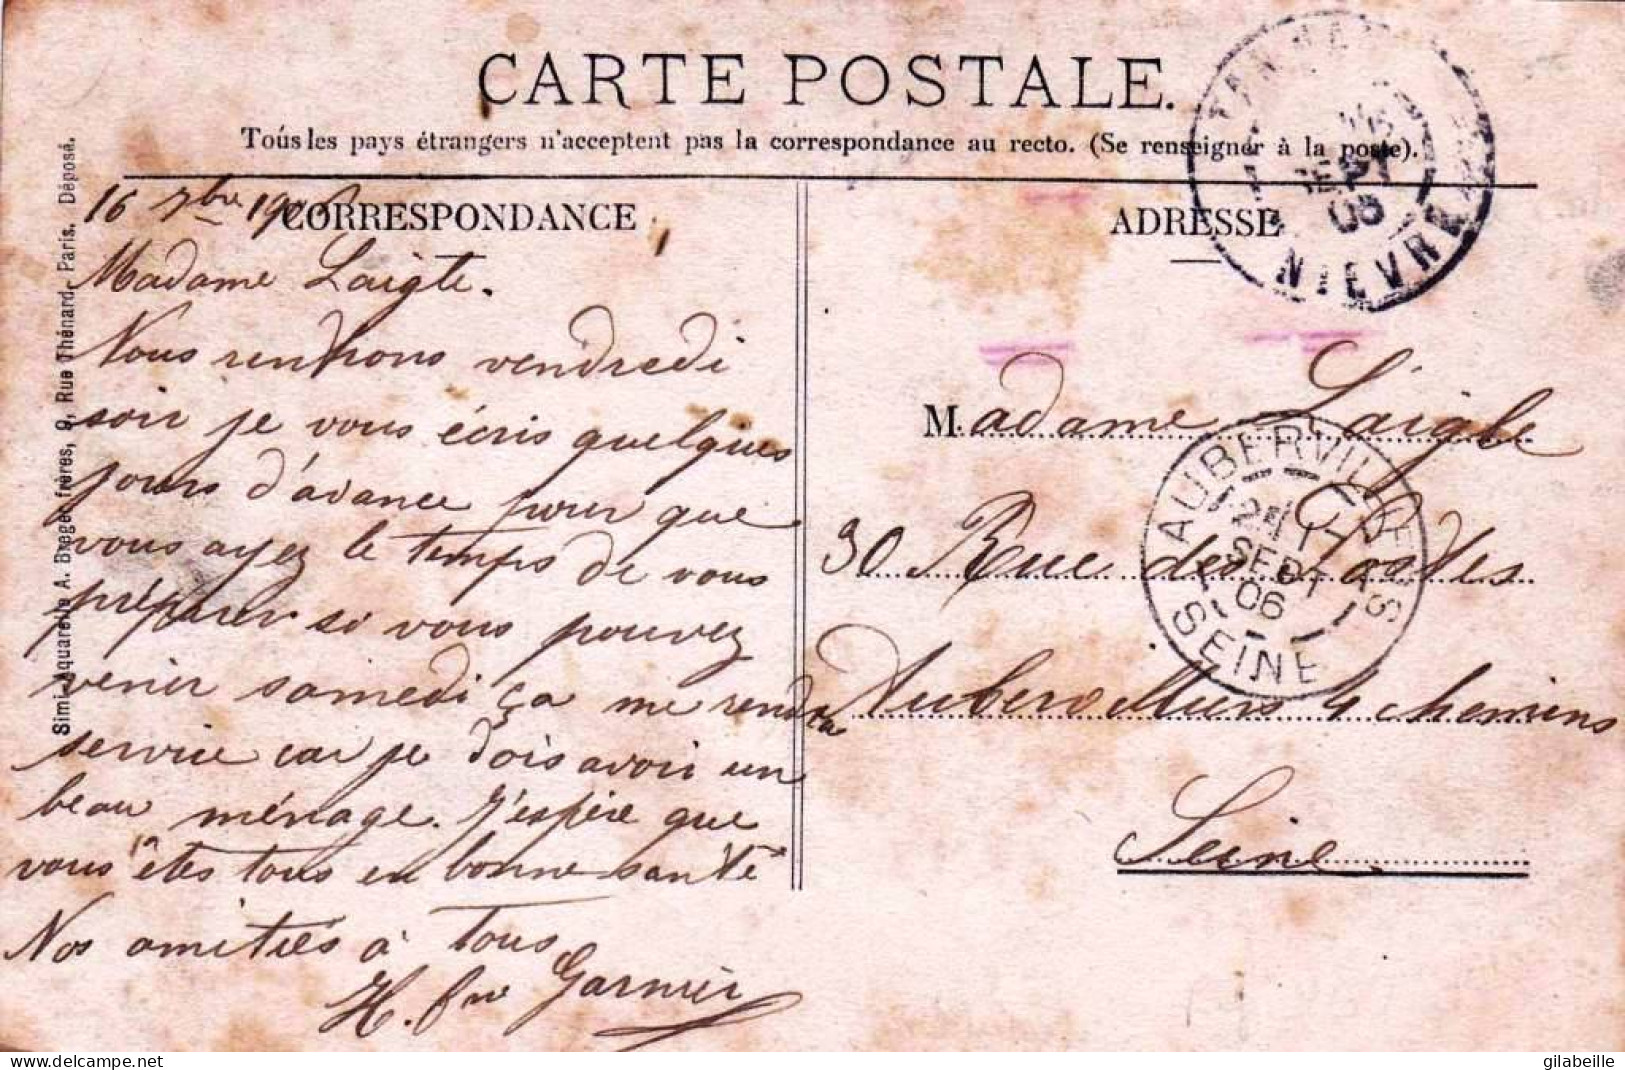 CARTE POSTALE.
Tous les pays étrangers n'acceptent pas la correspondance au recto. (Se renseigner à la poste).
CORRESPONDANCE
16 7bre 1906
Madame Laigle.
Nous rentrons vendredi
soir je vous écris quelques
jours d'avance pour que
vous ayez le temps de vous
préparer si vous pouvez
venir samedi ça me rendra
service car je dois avoir un
beau ménage. J'espère que
vous êtes tous en bonne santé
Nos amitiés à tous
H. Garnier
Simili-Aquarelle A. Breger frères, 9, Rue Thénard, Paris. Déposé.
ADRESSE
Madame Laigle
30 Rue des Postes
Aubervilliers 4 chemins
Seine
NIÈVRE
SEPT
06
AUBERVILLIERS
17
SEPT
06
SEINE
gilabeille